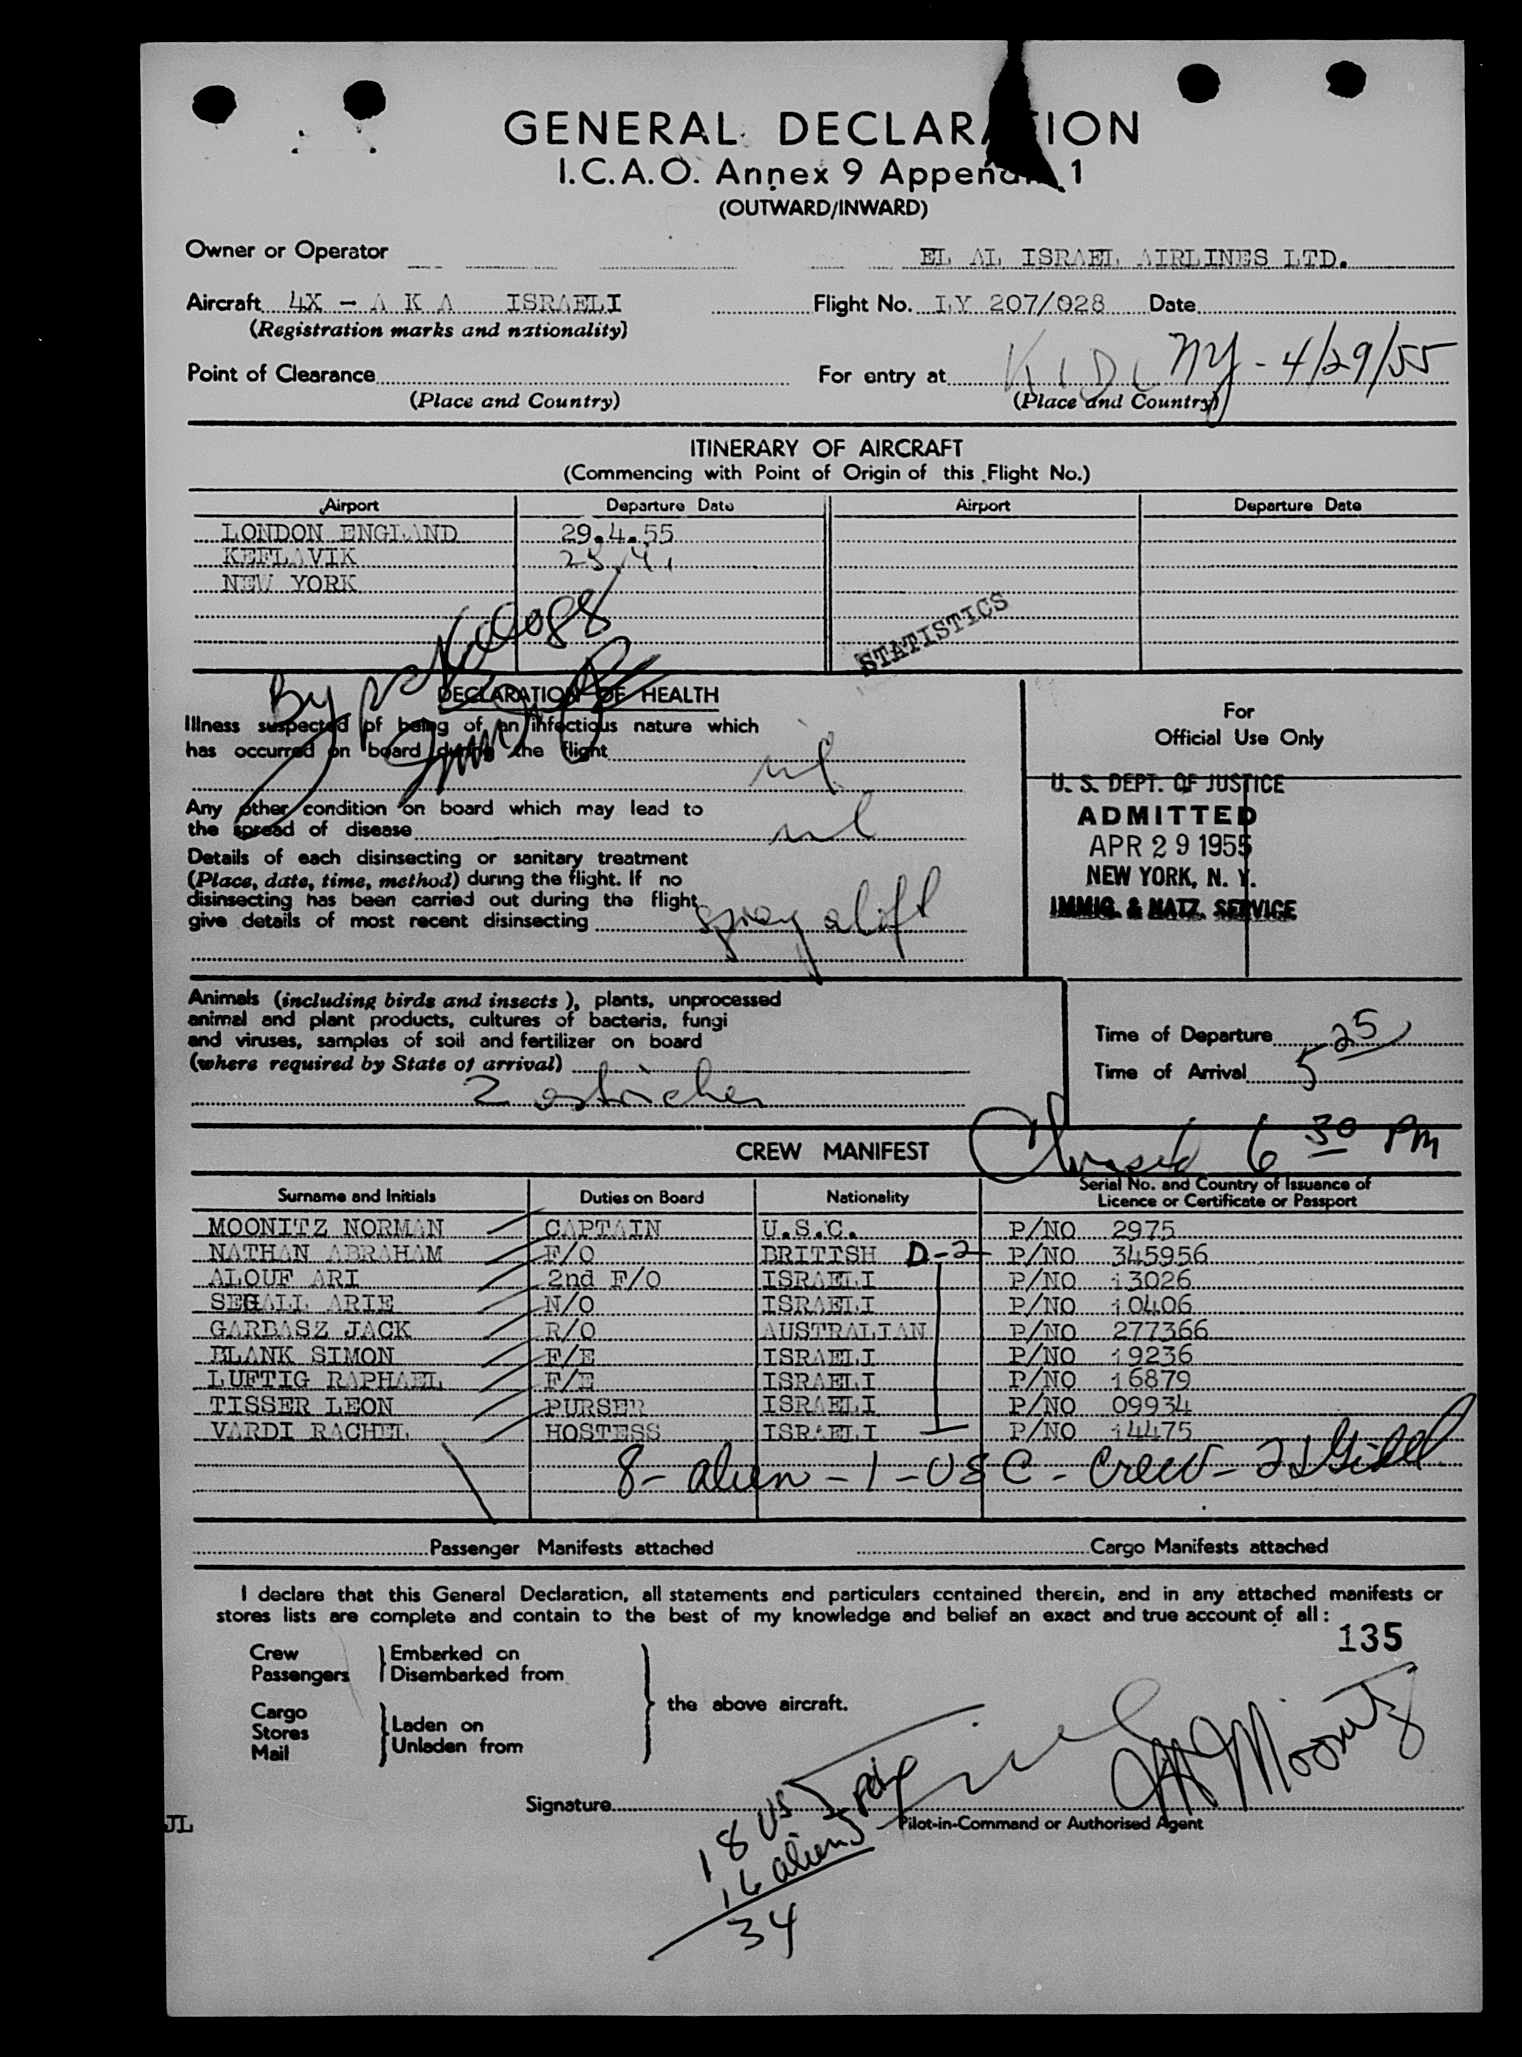 GENERAL DECLARATION
I.C.A.O. Annex 9 Appendix 1
(OUTWARD/INWARD)
Owner or Operator EL AL ISRAEL AIRLINES LTD.
Aircraft 4X - A K A ISRAELI Flight No. LY 207/028 Date
(Registration marks and nationality)
Point of Clearance For entry at NY - 4/29/55
(Place and Country) (Place and Country)
ITINERARY OF AIRCRAFT
(Commencing with Point of Origin of this Flight No.)
Airport Departure Date Airport Departure Date
LONDON ENGLAND 29.4.55
KEFLAVIK
NEW YORK
STATISTICS
By
DECLARATION OF HEALTH
Illness suspected of being of an infectious nature which
has occurred on board during the flight nil
Any other condition on board which may lead to
the spread of disease nil
Details of each disinsecting or sanitary treatment
(Place, date, time, method) during the flight. If no
disinsecting has been carried out during the flight
give details of most recent disinsecting spray aloft
For
Official Use Only
U. S. DEPT. OF JUSTICE
ADMITTED
APR 29 1955
NEW YORK, N. Y.
IMMIG. & NATZ. SERVICE
Animals (including birds and insects), plants, unprocessed
animal and plant products, cultures of bacteria, fungi
and viruses, samples of soil and fertilizer on board
(where required by State of arrival)
2 ostriches
Time of Departure
Time of Arrival 5 25
CREW MANIFEST
6 30 PM
Surname and Initials Duties on Board Nationality Serial No. and Country of Issuance of
Licence or Certificate or Passport
MOONITZ NORMAN CAPTAIN U.S.C. P/NO 2975
NATHAN ABRAHAM F/O BRITISH D-2 P/NO 345956
ALOUF ARI 2nd F/O ISRAELI P/NO 13026
SEGALL ARIE N/O ISRAELI P/NO 10406
GARBASZ JACK R/O AUSTRALIAN P/NO 277366
BLANK SIMON F/E ISRAELI P/NO 19236
LUFTIG RAPHAEL F/E ISRAELI P/NO 16879
TISSER LEON PURSER ISRAELI P/NO 09934
VARDI RACHEL HOSTESS ISRAELI P/NO 14475
8 - alien - 1 - USC - crew -
Passenger Manifests attached Cargo Manifests attached
I declare that this General Declaration, all statements and particulars contained therein, and in any attached manifests or
stores lists are complete and contain to the best of my knowledge and belief an exact and true account of all :
135
Crew Embarked on
Passengers Disembarked from
the above aircraft.
Cargo
Stores Laden on
Mail Unladen from
Signature
Moonitz
JL
Pilot-in-Command or Authorised Agent
18 US
16 aliens
34